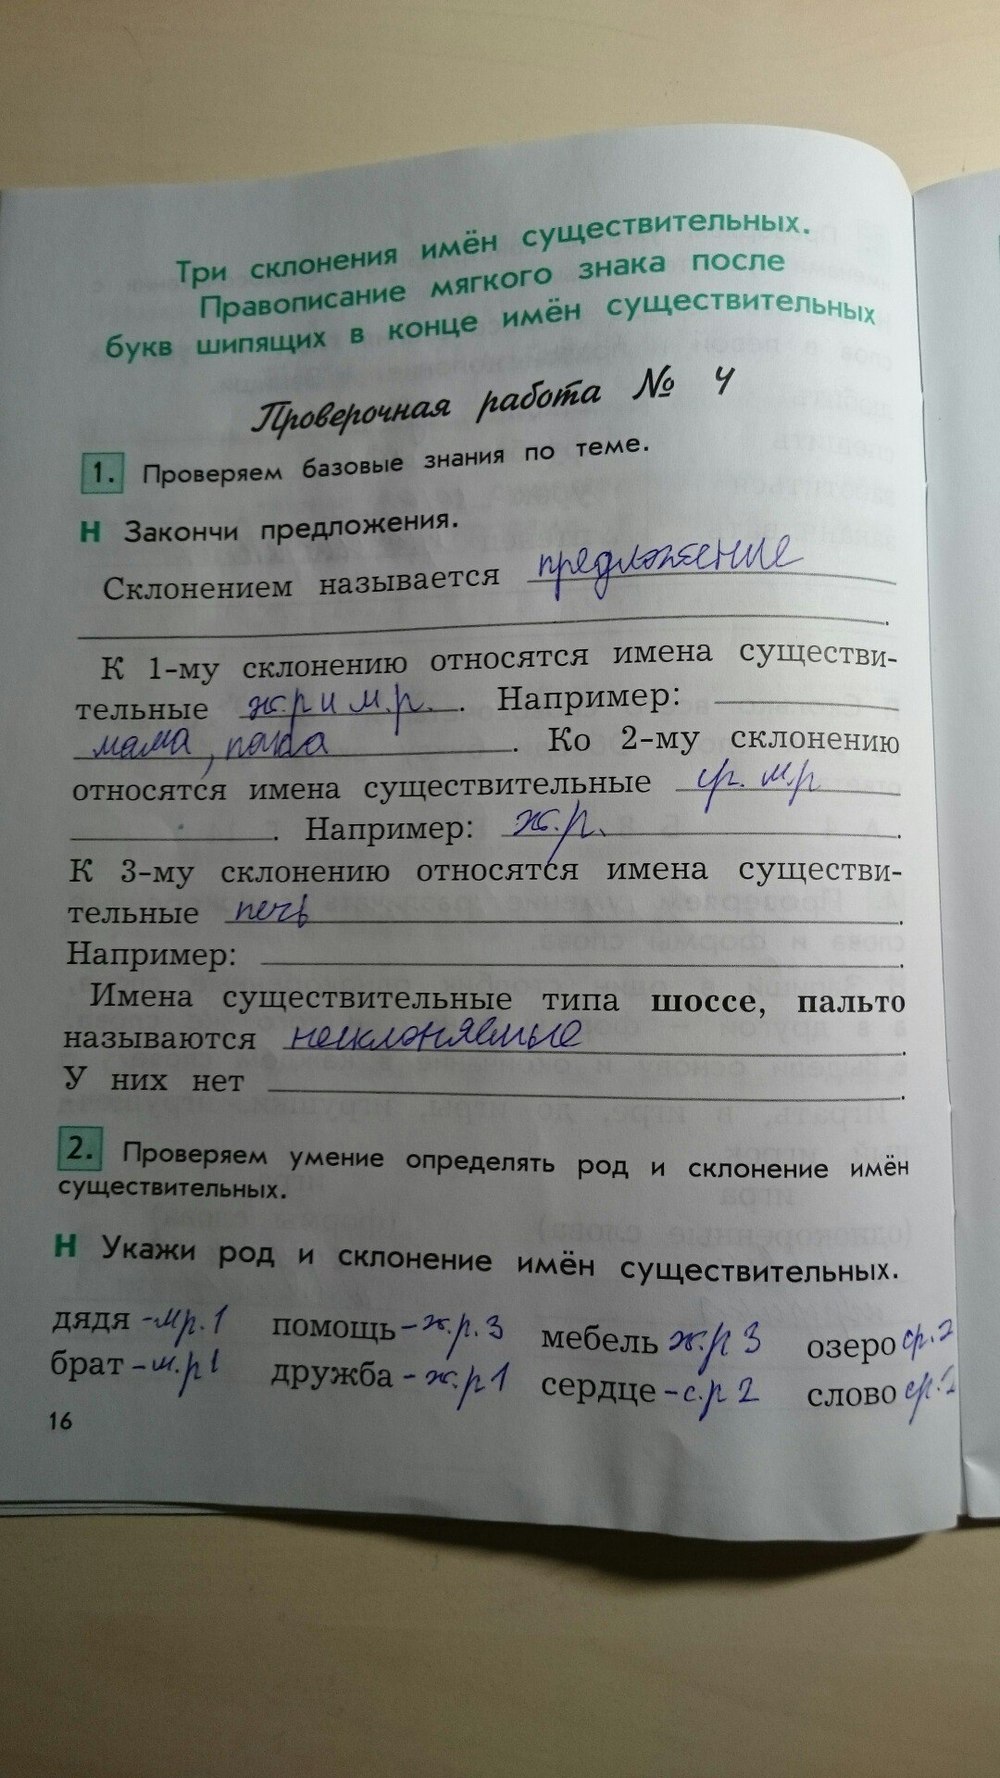 Три склонения имён существительных.
Правописание мягкого знака после
букв шипящих в конце имён существительных
Проверочная работа № 4
1. Проверяем базовые знания по теме.
Н Закончи предложения.
Склонением называется предложение
.
К 1-му склонению относятся имена существи-
тельные ж.р и м.р. . Например:
мама, папа . Ко 2-му склонению
относятся имена существительные ср. м.р
. Например: ж.р. .
К 3-му склонению относятся имена существи-
тельные печь .
Например: .
Имена существительные типа шоссе, пальто
называются несклоняемые .
У них нет .
2. Проверяем умение определять род и склонение имён
существительных.
Н Укажи род и склонение имён существительных.
дядя - м.р. 1 помощь - ж.р. 3 мебель ж.р 3 озеро ср. 2
брат - м.р 1 дружба - ж.р 1 сердце - с.р 2 слово ср. 2
16